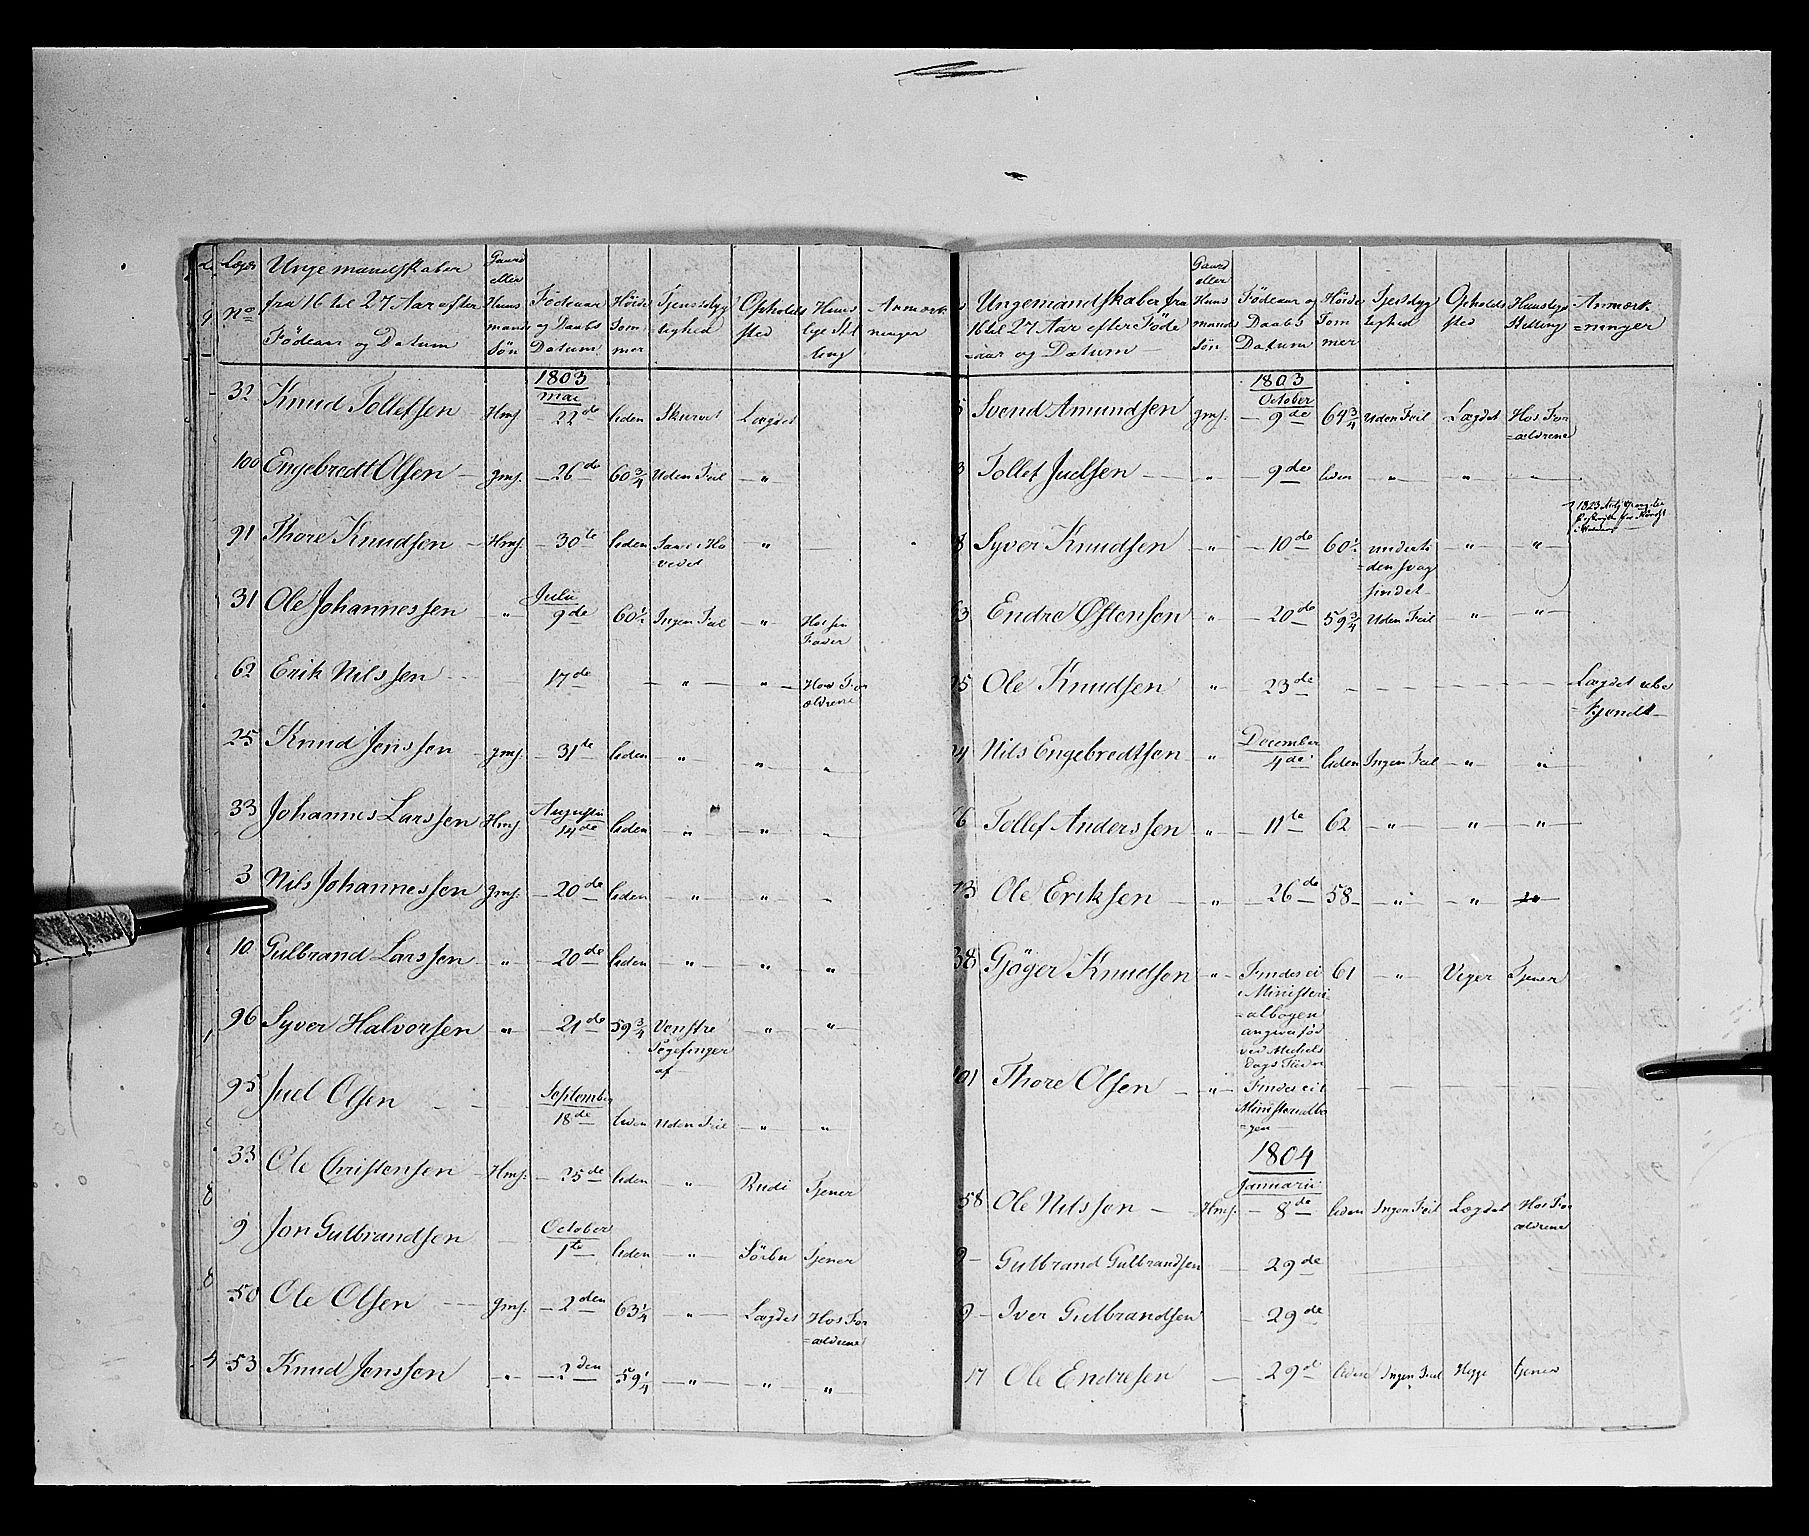 Lægds No
Unge mandskaber
fra 16 til 27 Aar efter
Fødeaar og Datum
Gaard eller Huusmands Søn
Fødeaar og Daabs Datum
Høide Tommer
Tjenstdygtighed
Opholds sted
Huuslige Stilling
Anmærkninger
1803
Mai
32 Knud Tollefsen Hms. 22de liden Skurvet Lægdet
100 Engebredt Olsen — gms. — 26de 60 3/4 Uden Feil — " —
91 Thore Knudsen — Hms. — 30te liden Saar i Hovedet "
Julii
31 Ole Johannessen — " — 9de 60 1/2 Ingen Feil — " — Hos sin Fader
62 Erik Nilssen 17de — " — " — Hos Forældrene
25 Knud Jenssen — gms. — 31te liden — " — " "
Augustii
33 Johannes Larssen Hms 14de liden " — " — "
3 Nils Johannessen gms. — 20de liden — " — " — "
10 Gulbrand Larssen — " — 20de liden — " — " — "
96 Syver Halvorsen " — 21de 59 3/4 Venstre Pegefinger af — " — "
September
95 Juel Olsen — — 18de liden Uden Feil — " — "
33 Ole Christensen — Hms. — 25de liden — " — Rudi Tjener
October
9 Jon Gulbrandsen — 1te liden — " — Sørbu Tjener
50 Ole Olsen — gms. — 2den 63 1/4 — " — Lægdet Hos Forældrene
53 Knud Jenssen — " — 2den 59 1/4 — " — " "
Ungemandskaber fra
16 til 27 Aar efter Føde
=aar og Datum —
Gaard eller Huusmands Søn
Fødeaar og Daabs Datum
Høide Tommer
Tjenstdygtighed
Opholds sted
Huuslige Stilling
Anmærk=ninger
1803
October
5 Svend Amundsen gms. — 9de 64 3/4 Uden Feil — Lægdet Hos For=ældrene
3 Tollef Juelsen — " — 9de liden — " — " — "
8 Syver Knudsen — " — 10de 60 1/2 underti=den svag sindet — " — "
63 Endre Østensen " — 20de 59 3/4 Uden Feil — " — "
25 Ole Knudsen " — 23de — — — — Lægdet ube=kjendt —
December
24 Nils Engebredtsen " 4de liden Ingen Feil — " — "
6 Tollef Anderssen — " — 11te 62 — " — " — "
13 Ole Eriksen — " — 26de 58 — " — "
38 Gjøger Knudsen — " — Findes ei i Ministeri=albogen angives fød ved Michels Dags Tider 61 — " — Veger Tjener
101 Thore Olsen — " — Findes ei i Ministerialbo=gen
1804
Januarii
58 Ole Nilssen — Hms. — 8de liden Ingen Feil Lægdet Hos For=ældrene
9 — Gulbrand Gulbrandsen — 29de
9 — Iver Gulbrandsen — 29de
17 Ole Endresen — 29de liden Ingen Feil Hegge tjener